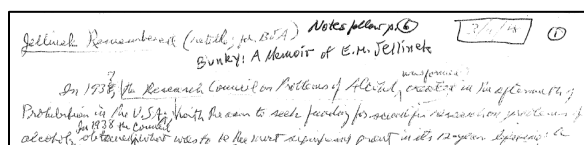 Jellinek Remembered (retitle; for BJA) Notes follow p. 6 3/1/98 1
Bunky: A Memoir of E.M. Jellinek
In 1938, ? the Research Council on Problems of Alcohol, was formed created in the aftermath of
Prohibition in the U.S.A., with the aim to seek funding for scientific research on problems of
alcohol, In 1938 the Council obtained what was to be the most significant grant in its 12-year